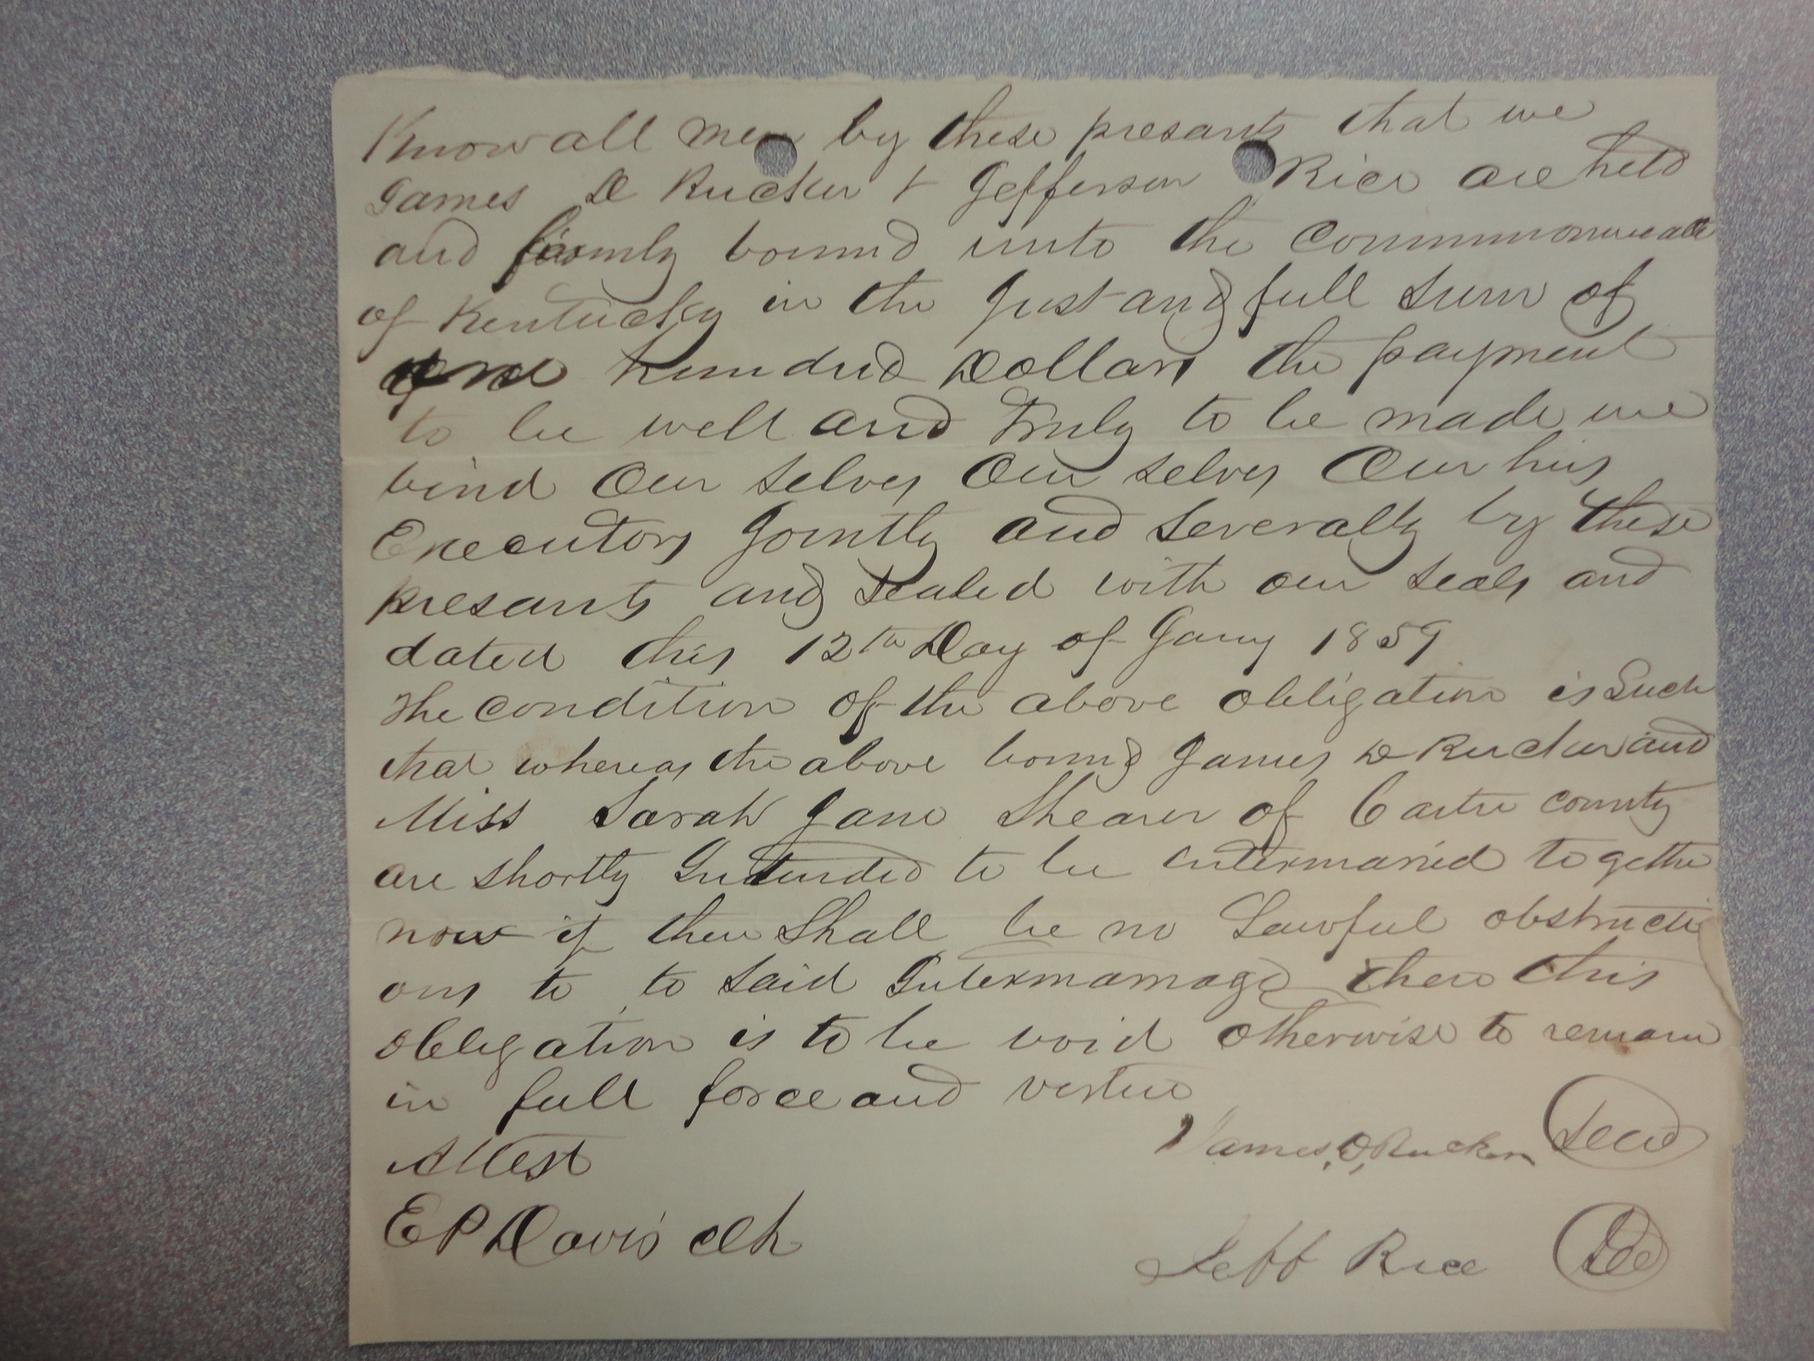 Know all men by these presants that we
James D Rucker & Jefferson Rice are held
and firmly bound unto the Commonwealth
of Kentucky in the Just and full sum of
one hundred Dollars the payment
to be well and truly to be made we
bind our selves our selves our hirs
Executors Jointly and severally by these
presants and sealed with our seals and
dated this 12th Day of Jany 1859
The condition of the above obligation is such
that whereas the above bound James D Rucker and
Miss Sarah Jane Shearer of Carter county
are shortly Intended to be intermaried together
now if there shall be no Lawful obstructi
ons to to said Intermarriage then this
obligation is to be void otherwise to remain
in full force and vertue
Attest
James, D, Rucker Seal
E P Davis clk
Jeff Rice